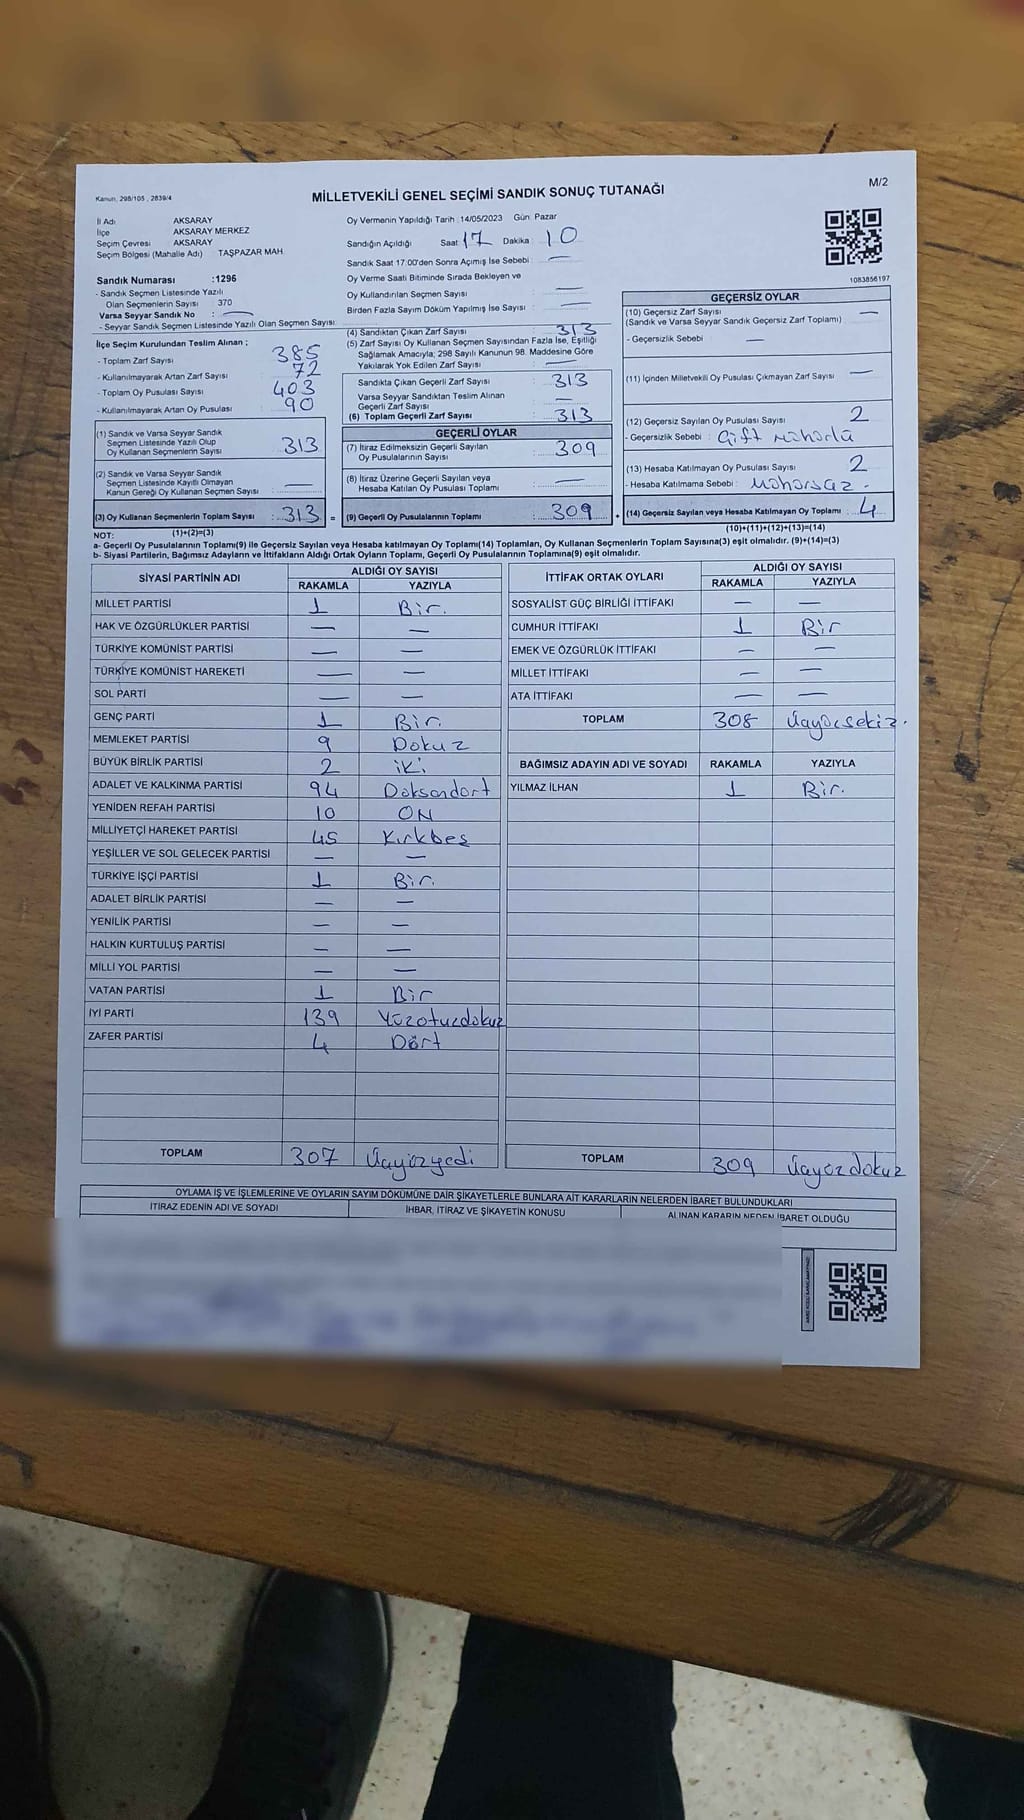 Kanun, 298/105 , 2839/4
MİLLETVEKİLİ GENEL SEÇİMİ SANDIK SONUÇ TUTANAĞI
M/2
İl Adı AKSARAY
İlçe AKSARAY MERKEZ
Seçim Çevresi : AKSARAY
Seçim Bölgesi (Mahalle Adı) TAŞPAZAR MAH.
Sandık Numarası :1296
- Sandık Seçmen Listesinde Yazılı
Olan Seçmenlerin Sayısı : 370
Varsa Seyyar Sandık No : —
- Seyyar Sandık Seçmen Listesinde Yazılı Olan Seçmen Sayısı:
Oy Vermenin Yapıldığı Tarih :14/05/2023 Gün: Pazar
Sandığın Açıldığı Saat: 17 Dakika : 10
Sandık Saat 17:00'den Sonra Açımış İse Sebebi : —
Oy Verme Saati Bitiminde Sırada Bekleyen ve
Oy Kullandırılan Seçmen Sayısı —
Birden Fazla Sayım Döküm Yapılmış İse Sayısı : —
1083856197
İlçe Seçim Kurulundan Teslim Alınan ;
- Toplam Zarf Sayısı 385
- Kullanılmayarak Artan Zarf Sayısı : 72
- Toplam Oy Pusulası Sayısı 403
- Kullanılmayarak Artan Oy Pusulası : 90
(1) Sandık ve Varsa Seyyar Sandık
Seçmen Listesinde Yazılı Olup
Oy Kullanan Seçmenlerin Sayısı : 313
(2) Sandık ve Varsa Seyyar Sandık
Seçmen Listesinde Kayıtlı Olmayan
Kanun Gereği Oy Kullanan Seçmen Sayısı : —
(3) Oy Kullanan Seçmenlerin Toplam Sayısı : 313 =
(4) Sandıktan Çıkan Zarf Sayısı : 313
(5) Zarf Sayısı Oy Kullanan Seçmen Sayısından Fazla İse, Eşitliği
Sağlamak Amacıyla; 298 Sayılı Kanunun 98. Maddesine Göre
Yakılarak Yok Edilen Zarf Sayısı : —
Sandıkta Çıkan Geçerli Zarf Sayısı : 313
Varsa Seyyar Sandıktan Teslim Alınan
Geçerli Zarf Sayısı —
(6) Toplam Geçerli Zarf Sayısı : 313
GEÇERLİ OYLAR
(7) İtiraz Edilmeksizin Geçerli Sayılan
Oy Pusulalarının Sayısı : 309
(8) İtiraz Üzerine Geçerli Sayılan veya
Hesaba Katılan Oy Pusulası Toplamı : —
(9) Geçerli Oy Pusulalarının Toplamı : 309 +
GEÇERSİZ OYLAR
(10) Geçersiz Zarf Sayısı
(Sandık ve Varsa Seyyar Sandık Geçersiz Zarf Toplamı) : —
- Geçersizlik Sebebi : —
(11) İçinden Milletvekili Oy Pusulası Çıkmayan Zarf Sayısı : —
(12) Geçersiz Sayılan Oy Pusulası Sayısı : 2
- Geçersizlik Sebebi : Çift mühürlü
(13) Hesaba Katılmayan Oy Pusulası Sayısı : 2
- Hesaba Katılmama Sebebi : Mühürsüz.
(14) Geçersiz Sayılan veya Hesaba Katılmayan Oy Toplamı : 4
NOT: (1)+(2)=(3)
(10)+(11)+(12)+(13)=(14)
a- Geçerli Oy Pusulalarının Toplamı(9) ile Geçersiz Sayılan veya Hesaba katılmayan Oy Toplamı(14) Toplamları, Oy Kullanan Seçmenlerin Toplam Sayısına(3) eşit olmalıdır. (9)+(14)=(3)
b- Siyasi Partilerin, Bağımsız Adayların ve İttifakların Aldığı Ortak Oyların Toplamı, Geçerli Oy Pusulalarının Toplamına(9) eşit olmalıdır.
SİYASİ PARTİNİN ADI ALDIĞI OY SAYISI
RAKAMLA YAZIYLA
MİLLET PARTİSİ 1 Bir.
HAK VE ÖZGÜRLÜKLER PARTİSİ — —
TÜRKİYE KOMÜNİST PARTİSİ — —
TÜRKİYE KOMÜNİST HAREKETİ — —
SOL PARTİ — —
GENÇ PARTİ 1 Bir.
MEMLEKET PARTİSİ 9 Dokuz
BÜYÜK BİRLİK PARTİSİ 2 iki
ADALET VE KALKINMA PARTİSİ 94 Doksandört
YENİDEN REFAH PARTİSİ 10 ON
MİLLİYETÇİ HAREKET PARTİSİ 45 Kırkbeş
YEŞİLLER VE SOL GELECEK PARTİSİ — —
TÜRKİYE İŞÇİ PARTİSİ 1 Bir.
ADALET BİRLİK PARTİSİ — —
YENİLİK PARTİSİ — —
HALKIN KURTULUŞ PARTİSİ — —
MİLLİ YOL PARTİSİ — —
VATAN PARTİSİ 1 Bir
İYİ PARTİ 139 Yüzotuzdokuz
ZAFER PARTİSİ 4 Dört
TOPLAM 307 Üçyüzyedi
İTTİFAK ORTAK OYLARI ALDIĞI OY SAYISI
RAKAMLA YAZIYLA
SOSYALİST GÜÇ BİRLİĞİ İTTİFAKI — —
CUMHUR İTTİFAKI 1 Bir
EMEK VE ÖZGÜRLÜK İTTİFAKI — —
MİLLET İTTİFAKI — —
ATA İTTİFAKI — —
TOPLAM 308 Üçyüzsekiz.
BAĞIMSIZ ADAYIN ADI VE SOYADI RAKAMLA YAZIYLA
YILMAZ İLHAN 1 Bir.
TOPLAM 309 Üçyüzdokuz
OYLAMA İŞ VE İŞLEMLERİNE VE OYLARIN SAYIM DÖKÜMÜNE DAİR ŞİKAYETLERLE BUNLARA AİT KARARLARIN NELERDEN İBARET BULUNDUKLARI
İTİRAZ EDENİN ADI VE SOYADI İHBAR, İTİRAZ VE ŞİKAYETİN KONUSU ALINAN KARARIN NEDEN İBARET OLDUĞU